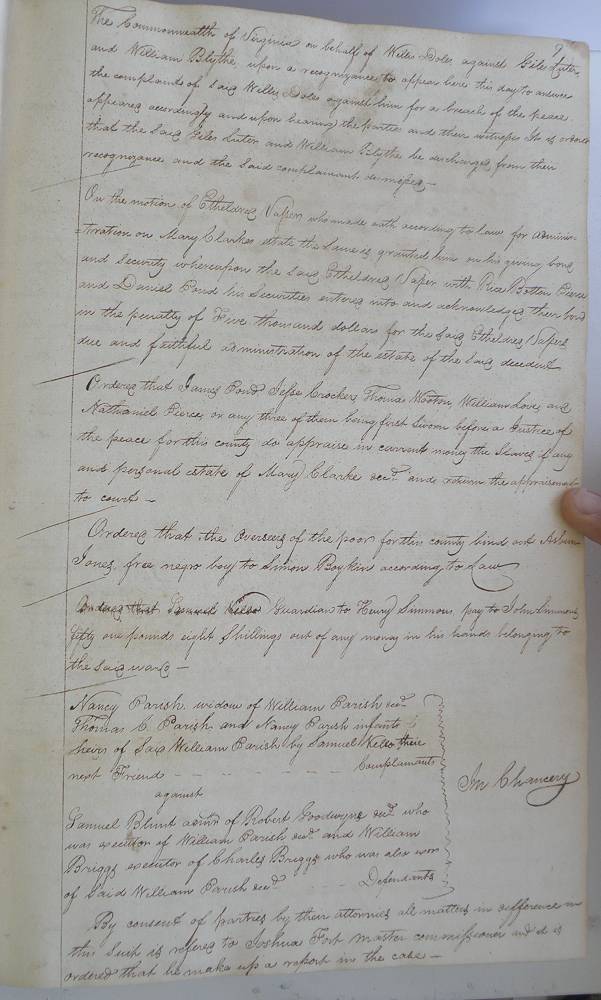 The Commonwealth of Virginia on behalf of Willis Doles against Giles Luter
and William Blythe, upon a recognizance to appear here this day to answer
the complaints of said Willis Doles against him for a breach of the peace
appeared accordingly and upon hearing the parties and their witnesses It is ordered
that the said Giles Luter and William Blythe be discharged from their
recognizance and the said complainant dismissed —
On the motion of Etheldred Vaser who made oath according to law for adminis-
=tration on Mary Clarkes estate the same is granted him on his giving bond
and security whereupon the said Etheldred Vaser with Rice Botten Pierce
and Daniel Pond his securities entered into and acknowledged their bond
in the penalty of Five thousand dollars for the said Etheldred Vasers
due and faithful administration of the estate of the said decedent
Ordered that James Pond Jesse Crocker, Thomas Wooton, William Love, and
Nathaniel Pierce, or any three of them being first sworn before a Justice of
the peace for this county do appraise in current money the slaves if any
and personal estate of Mary Clarke decd. and return the appraisement
to court —
Ordered that the overseers of the poor for this county bind out
Jones, free negro boy to Simon Boykin according to Law
Ordered that Samuel Kelso Guardian to Henry Simmons pay to John Simmons
fifty one pounds eight shillings out of any money in his hands belonging to
the said ward —
Nancy Parish widow of William Parish decd.
Thomas C. Parish and Nancy Parish infants &
heirs of said William Parish by Samuel Kelso their
next Friend - - - - Complainants
against
Samuel Blunt admr of Robert Goodwyne decd. who
was executor of William Parish decd. and William
Briggs executor of Charles Briggs who was also exor
of said William Parish decd. - - - Defendants
In Chancery
By consent of parties by their attornies all matters in difference in
this suit is refered to Joshua Fort master commissioner and it is
ordered that he make up a report in the case —